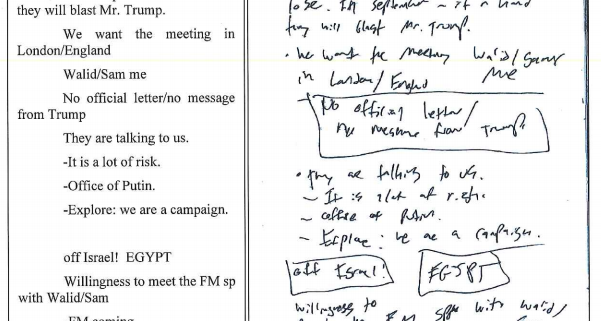 they will blast Mr. Trump.
We want the meeting in
London/England
Walid/Sam me
No official letter/no message
from Trump
They are talking to us.
-It is a lot of risk.
-Office of Putin.
-Explore: we are a campaign.
off Israel! EGYPT
Willingness to meet the FM sp
with Walid/Sam
-FM coming
lose. In September – if a hand
they will blast Mr. Trump.
• we want the meeting Walid/Sam
in London/England me
No official letter/
no message from Trump
• They are talking to us.
– It is a lot of risk.
– office of Putin.
– Explore: we are a campaign.
off Israel! EGYPT
willingness to
FM with Walid/